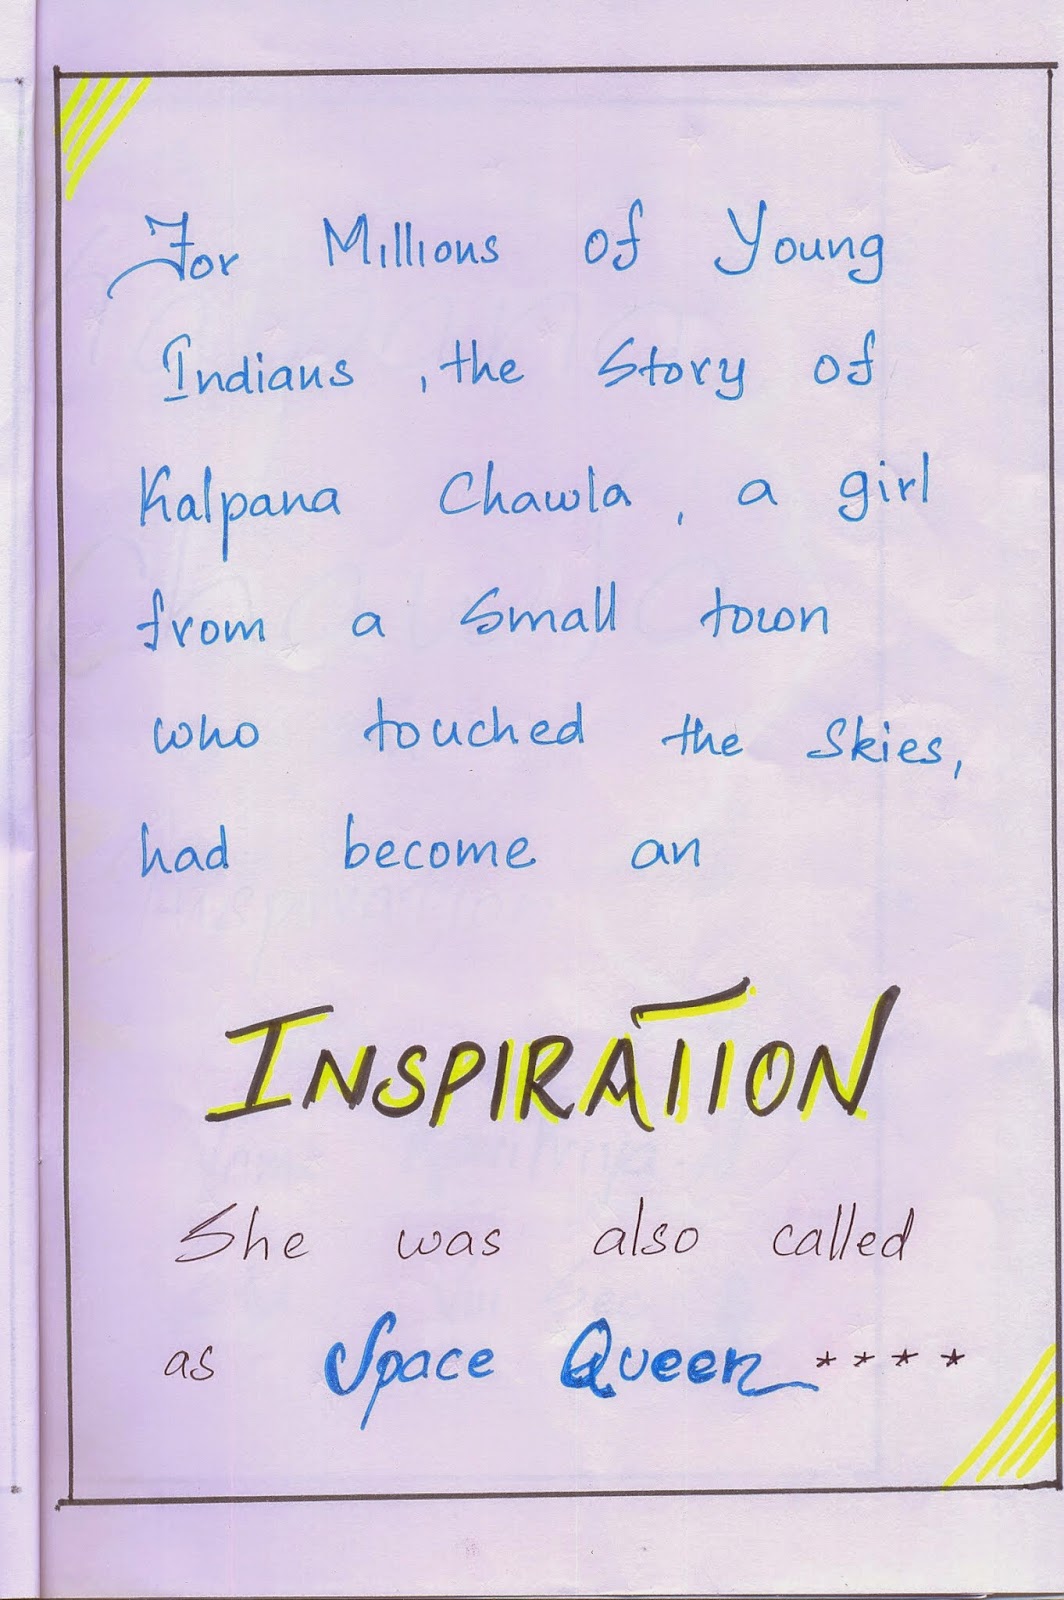 For Millions of Young
Indians , the Story of
Kalpana Chawla , a girl
from a Small town
who touched the Skies,
had become an
INSPIRATION
She was also called
as Space Queen ****